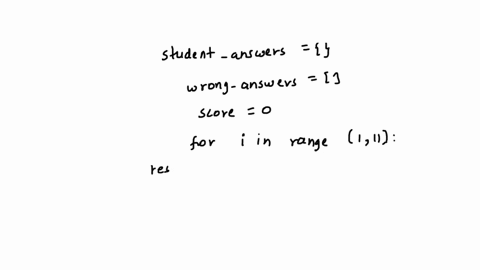 student_answers = {}
wrong-answers = []
score = 0
for i in range (1,11):
res